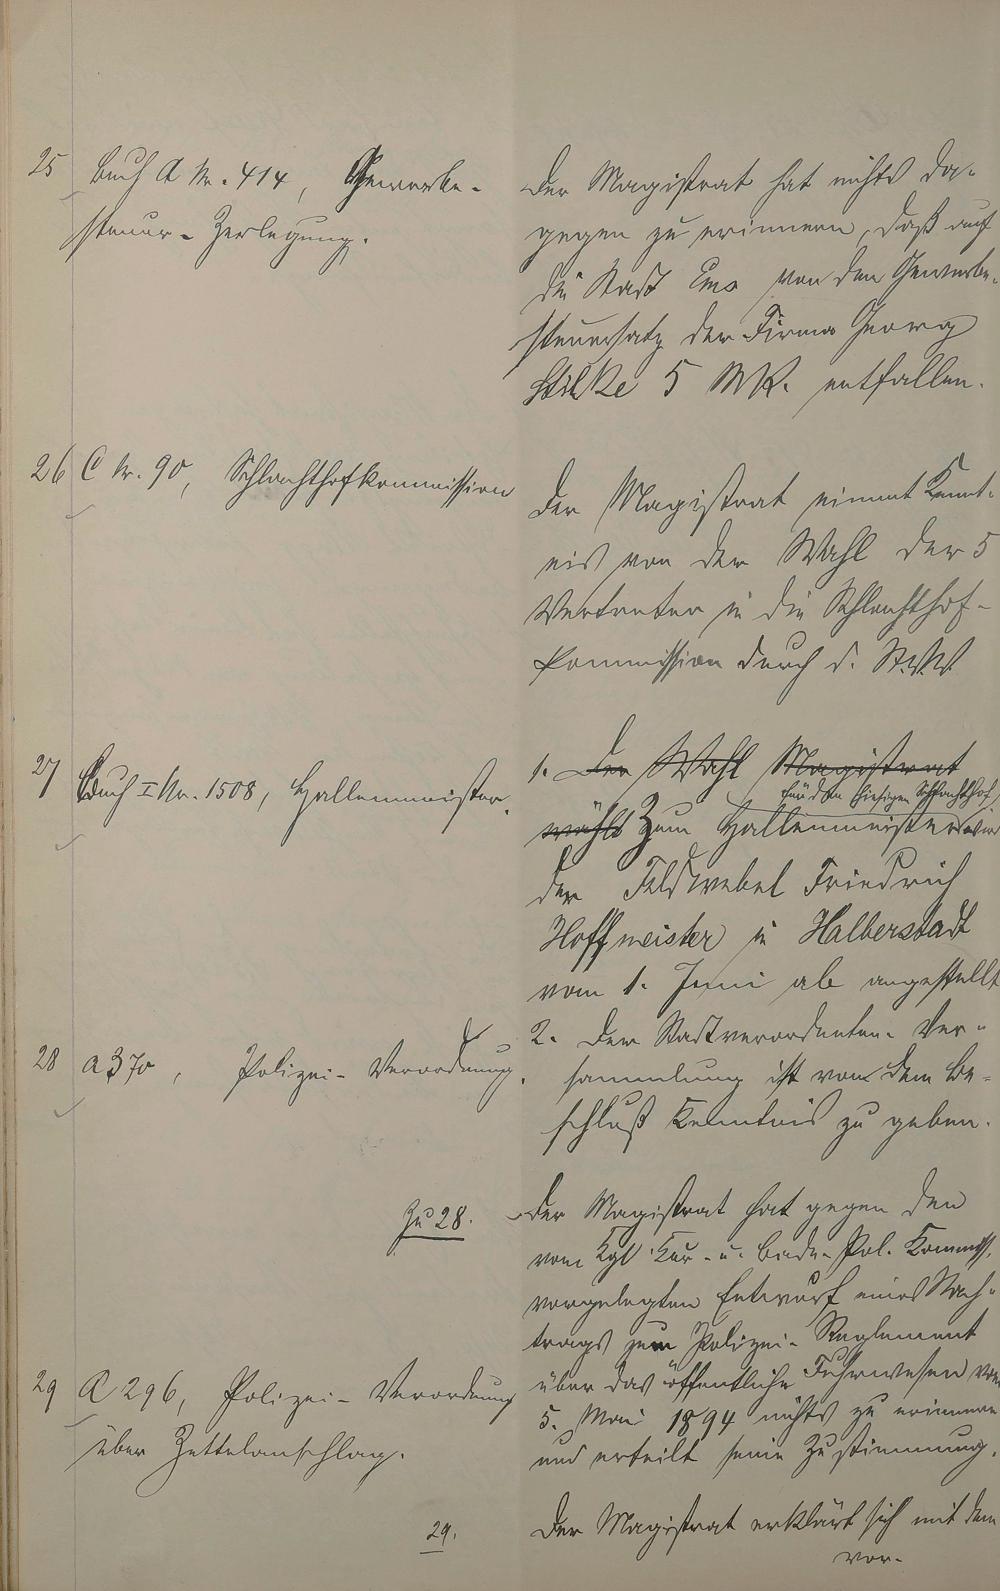 25 Buch A Nr. 414, Gewerbe-
steuer-Zerlegung.
Der Magistrat hat nichts da-
gegen zu erinnern, daß auf
die Stadt Ems von dem Gewerbe-
steuersatz der Firma Georg
Stilke 5 Mk. entfallen.
26 C Nr. 90, Schlachthofkommission
Der Magistrat nimmt Kennt-
nis von der Wahl der 5
Vertreter in die Schlachthof-
Kommission durch d. St.V.V.
27 Buch I Nr. 1508, Hallenmeister.
1. Der Wahl Magistrat
für den hiesigen Schlachthof
wählt Zum Hallenmeister wird
der Feldwebel Friedrich
Hoffmeister in Halberstadt
vom 1. Juni ab angestellt
2. Der Stadtverordneten-Ver-
sammlung ist von dem Be-
schluß Kenntnis zu geben.
28 A 370, Polizei-Verordnung.
Zu 28.
Der Magistrat hat gegen den
vom Kgl. Kur- u. Bade-Pol. Kommiss.
vorgelegten Entwurf eines Nach-
trags zum Polizei-Reglement
über das öffentliche Fuhrwesen vom
5. Mai 1894 nichts zu erinnern
und erteilt seine Zustimmung.
29 A 296, Polizei-Verordnung
über Zettelanschlag.
29.
Der Magistrat erklärt sich mit dem
vor-